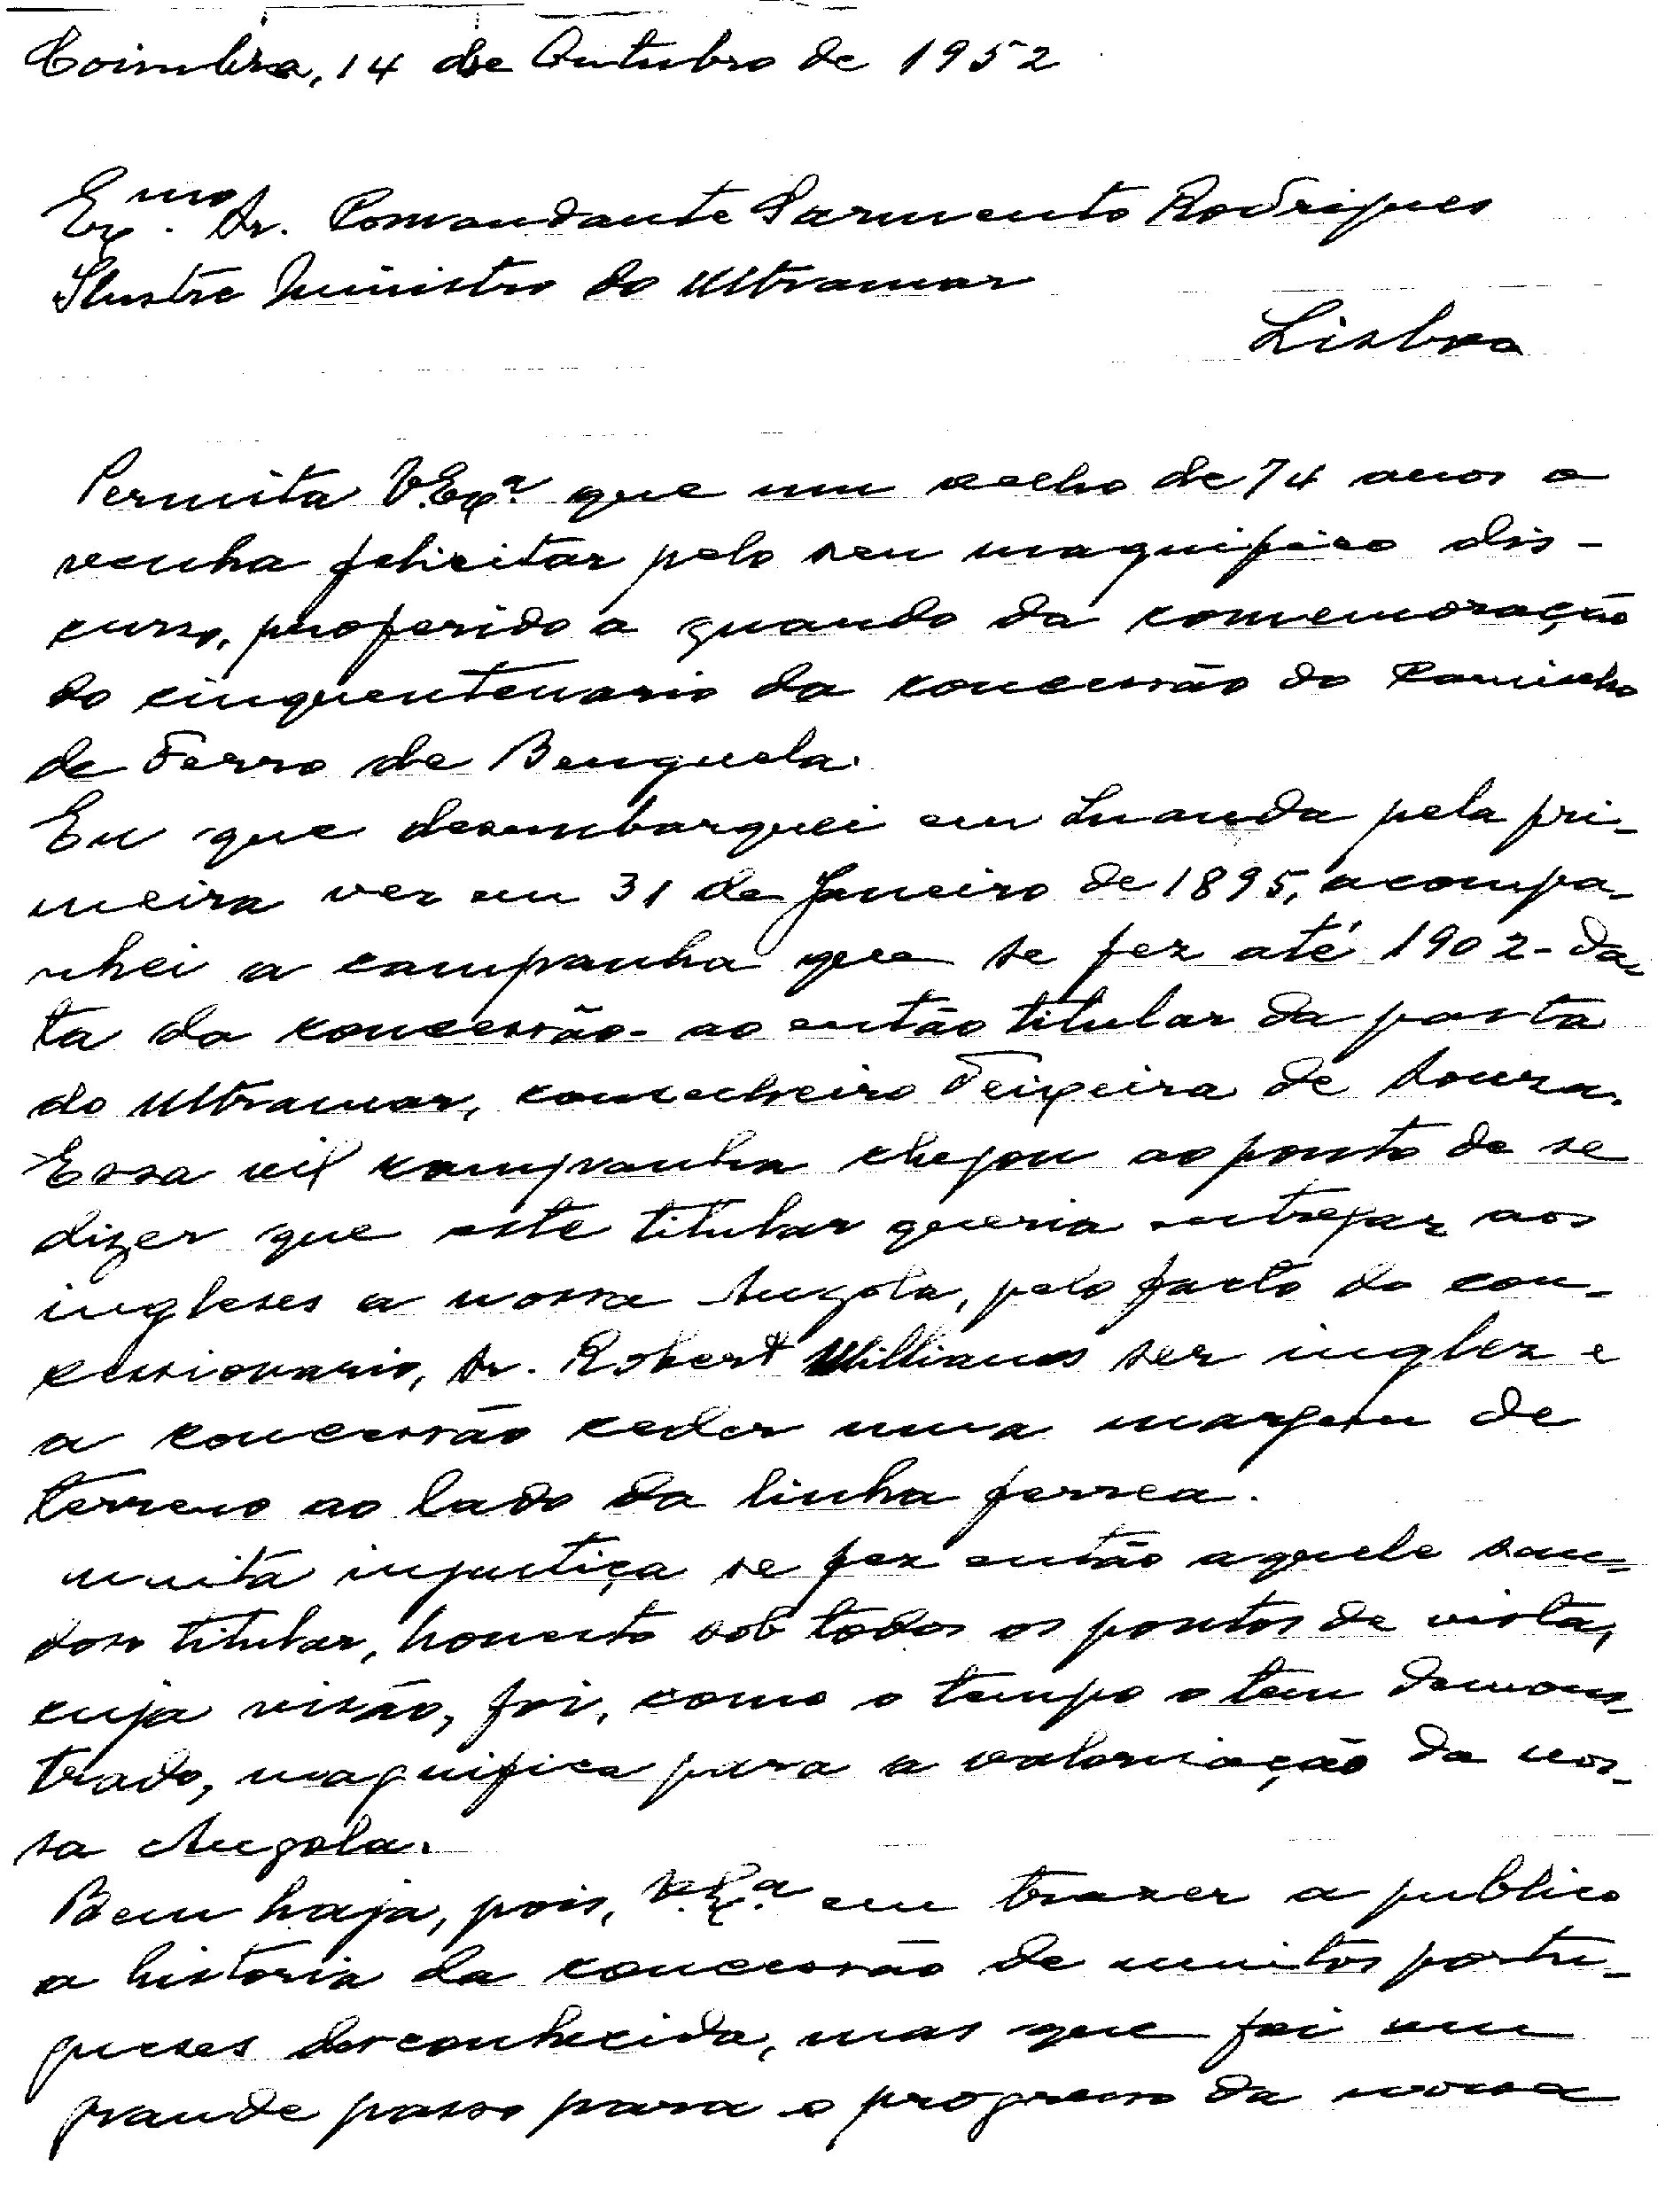 Coimbra, 14 de Outubro de 1952
Exmo. Sr. Comandante Sarmento Rodrigues
Ilustre Ministro do Ultramar
Lisboa
Permita V. Exª. que um velho de 74 anos o
venha felicitar pelo seu magnifico dis-
curso, proferido a quando da comemoração
do cinquentenario da concessão do Caminho
de Ferro de Benguela.
Eu que desembarquei em Luanda pela pri-
meira vez em 31 de Janeiro de 1895, acompa-
nhei a campanha que se fez até 1902 - da-
ta da concessão - ao então titular da pasta
do Ultramar, conselheiro Teixeira de Souza.
Essa vil campanha chegou ao ponto de se
dizer que este titular queria entregar aos
ingleses a nossa Angola, pelo facto do con-
cessionario, Sr. Robert Williams ser inglez e
a concessão ceder uma margem de
terreno ao lado da linha ferrea.
Muita injustiça se fez então aquele sau-
doso titular, honesto sob todos os pontos de vista,
cuja visão, foi, como o tempo o tem demons-
trado, magnifica para a valorisação da nos-
sa Angola.
Bem haja, pois, V. Exª. em trazer a publico
a história da concessão de muitos portu-
gueses desconhecida, mas que foi um
grande passo para o progresso da nossa